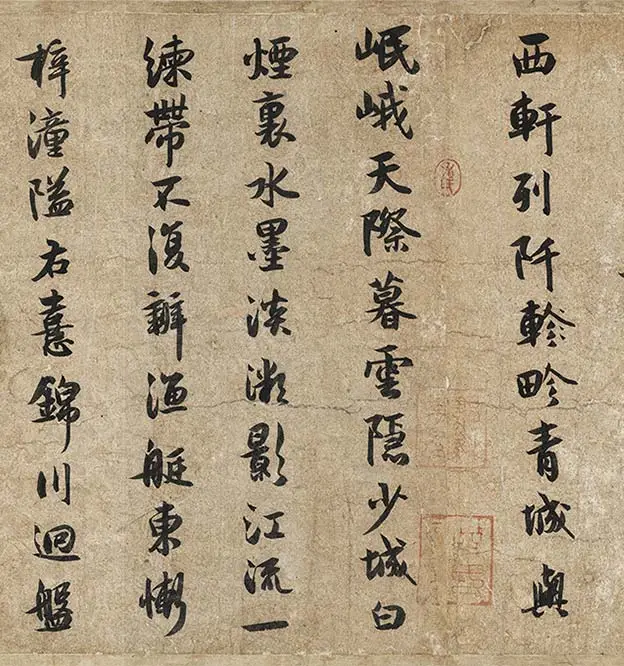 西軒列阡軫畛青城與
岷峨天際暮雲隱少城白
煙裏水墨淡影江流一
練帶不復辨漁艇東慚
梓潼隘右憙錦川迴盤